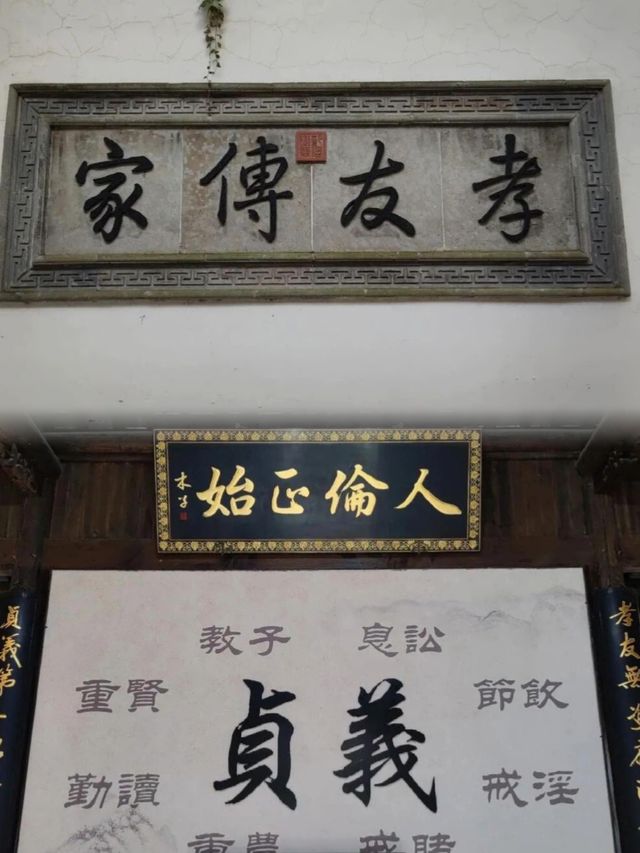 孝友傳家
人倫正始
木子
孝友無
貞義第
教子
息訟
重賢
節飲
貞義
勤讀
戒淫
重農
戒賭